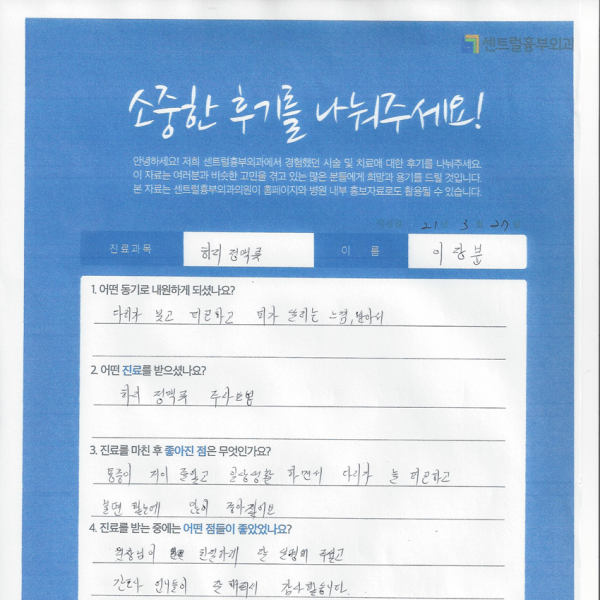 센트럴흉부외과
소중한 후기를 나눠주세요!
안녕하세요! 저희 센트럴흉부외과에서 경험했던 시술 및 치료에 대한 후기를 나눠주세요.
이 자료는 여러분과 비슷한 고민을 겪고 있는 많은 분들에게 희망과 용기를 드릴 것입니다.
본 자료는 센트럴흉부외과의원이 홈페이지와 병원 내부 홍보자료로도 활용될 수 있습니다.
21 3 27
진료과목 하지정맥류 이 름
1. 어떤 동기로 내원하게 되셨나요?
다리가 붓고 피곤하고 피가 쏠리는 느낌
2. 어떤 진료를 받으셨나요?
하지 정맥류 주사요법
3. 진료를 마친 후 좋아진 점은 무엇인가요?
통증이 많이 줄었고 일상생활 하면서 다리가 늘 피곤하고
좋아졌어요
4. 진료를 받는 중에는 어떤 점들이 좋았었나요?
원장님이 친절하게 잘 설명해 주셨고
간호사 언니들이 잘 해줘서 감사했습니다.